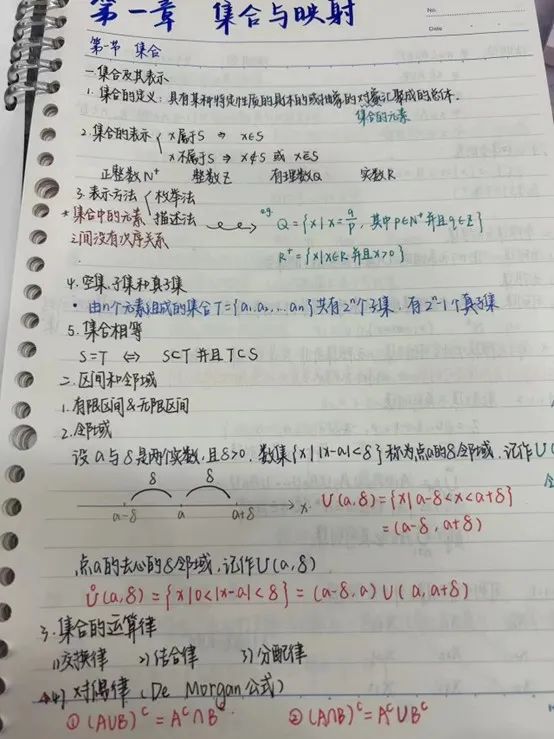 第一章 集合与映射
No.
Date
第一节 集合
一集合及其表示
1. 集合的定义: 具有某种特定性质的具体的或抽象的对象汇聚成的总体.
集合的元素
2. 集合的表示 { x属于S ⇒ x∈S
x不属于S ⇒ x∉S 或 x∈̅S
正整数N⁺ 整数Z 有理数Q 实数R
3. 表示方法 { 枚举法
* 集合中的元素 描述法 eg Q={x|x=q/p, 其中p∈N⁺并且q∈Z}
之间没有次序关系 R⁺={x|x∈R并且x>0}
4. 空集、子集和真子集
• 由n个元素组成的集合T={a₁,a₂,...an}共有2ⁿ个子集,有2ⁿ-1个真子集
5. 集合相等
S=T ⇔ S⊂T 并且 T⊂S
二. 区间和邻域
1. 有限区间&无限区间
2. 邻域
设a与δ是两个实数,且δ>0. 数集{x||x-a|<δ}称为点a的δ邻域, 记作U(
δ δ
a-δ a a+δ x
U(a,δ)={x|a-δ<x<a+δ}
=(a-δ,a+δ)
点a的去心的δ邻域,记作Ů(a,δ)
Ů(a,δ)={x|0<|x-a|<δ}=(a-δ,a)∪(a,a+δ)
3. 集合的运算律
1)交换律 2)结合律 3)分配律
4) 对偶律 (De Morgan公式)
① (A∪B)ᶜ=Aᶜ∩Bᶜ ② (A∩B)ᶜ=Aᶜ∪Bᶜ